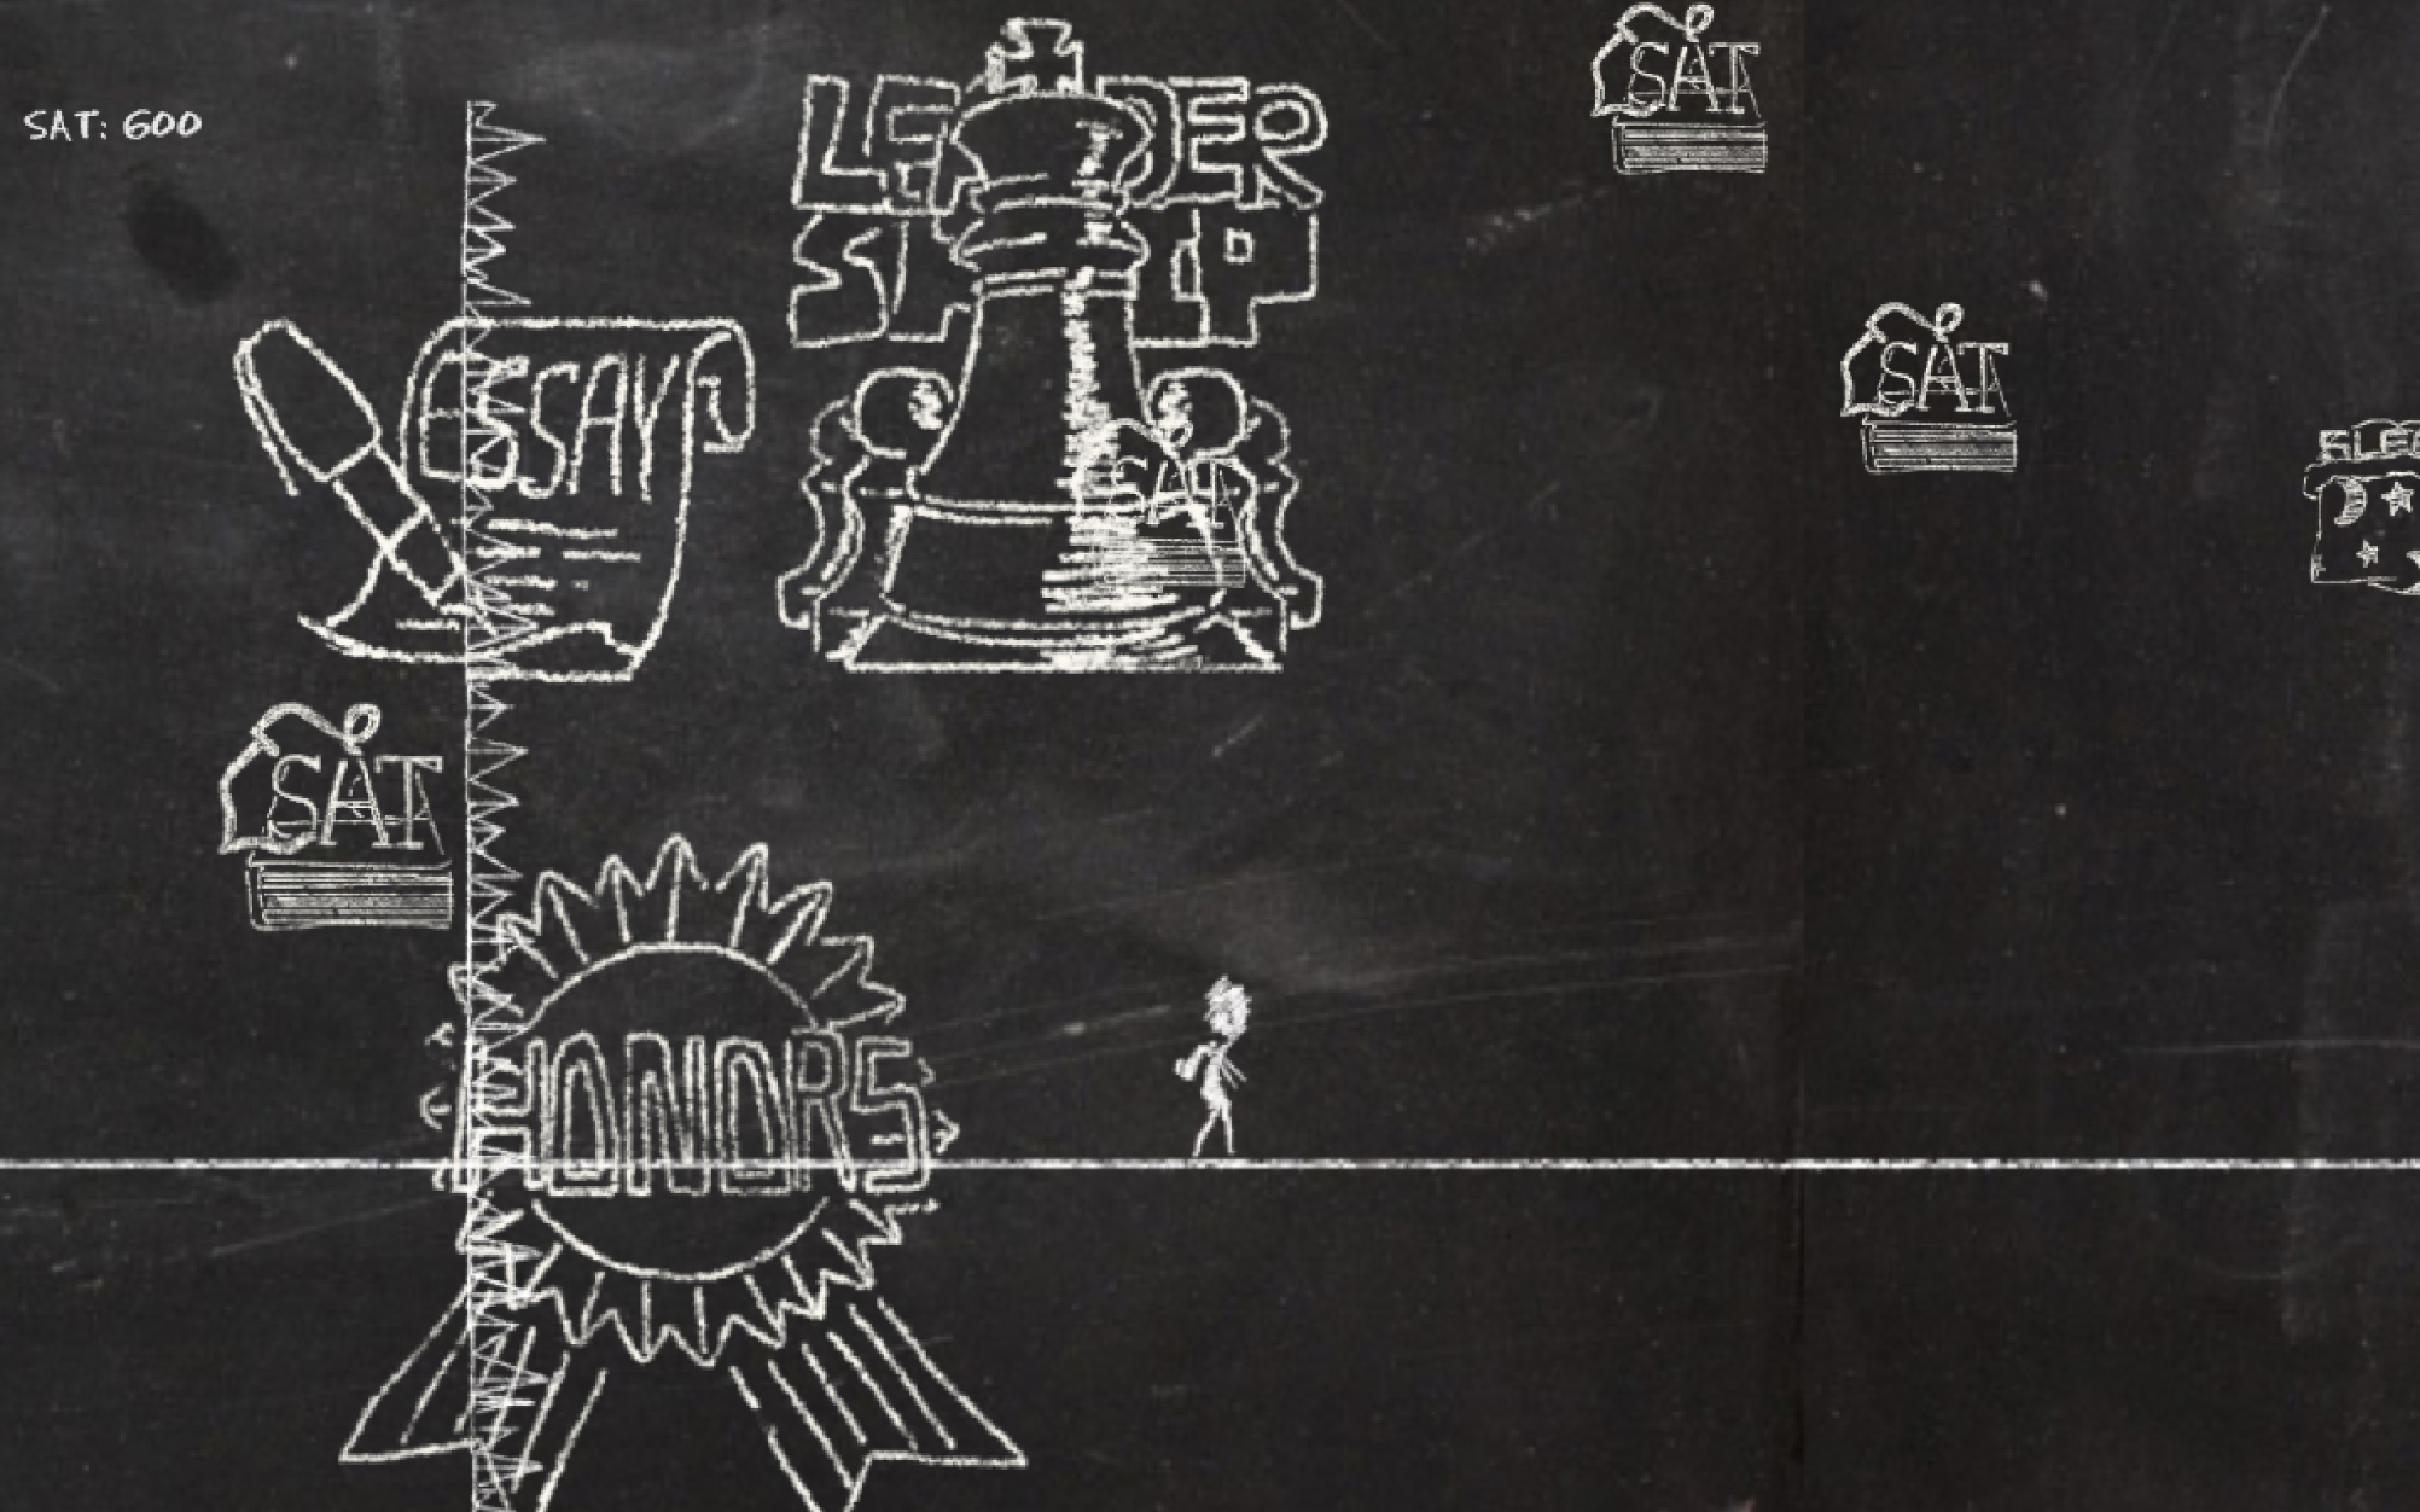 SAT: 600
LEADER
SHIP
SAT
ESSAY
SAT
SAT
SLEE
SAT
HONORS